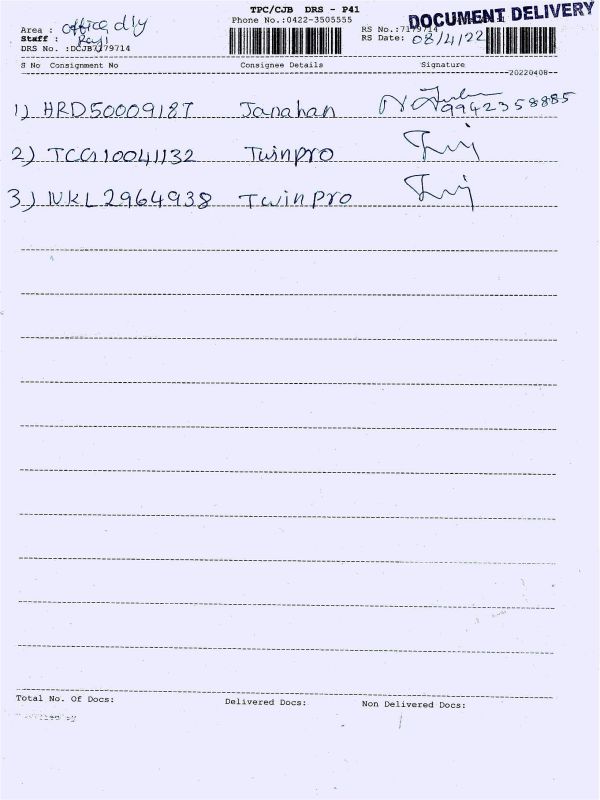 TPC/CJB DRS - P41
DOCUMENT DELIVERY
Phone No.:0422-3505555
Area : office dly
Staff : Raji
RS No.:7179714
DRS No. :DCJB7179714
RS Date: 08/4/22
S No Consignment No Consignee Details Signature
20220408
1) HRD50009187 Janahan 9942358885
2) TCG10041132 Twinpro
3) NKL2964938 Twinpro
Total No. Of Docs: Delivered Docs: Non Delivered Docs: